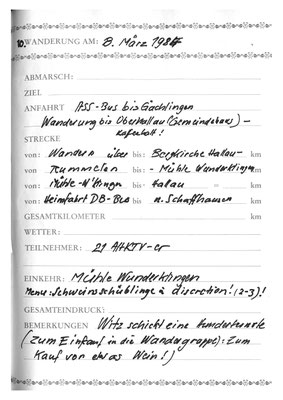 10. WANDERUNG AM: 8. März 1984
ABMARSCH:
ZIEL
ANFAHRT ASS-Bus bis Gächlingen
Wanderung bis Oberhallau (Gemeindehaus) –
STRECKE Kaffehalt!
von: Wandern über bis: Bergkirche Hallau – km
von: Rummelen – bis: – Mühle Wunderklingen km
von: Mühle-W'klingen bis: Hallau = km
von: Heimfahrt DB-Bus bis: n. Schaffhausen km
GESAMTKILOMETER km
WETTER:
TEILNEHMER: 21 AHKTV-er
EINKEHR: Mühle Wunderklingen
Menu: Schwinsschüblinge à discretion! (2-3)!
GESAMTEINDRUCK:
BEMERKUNGEN Witz schickt eine Hunderternote
(zum Einkauf in die Wandergruppe: Zum
Kauf von etwas Wein!)